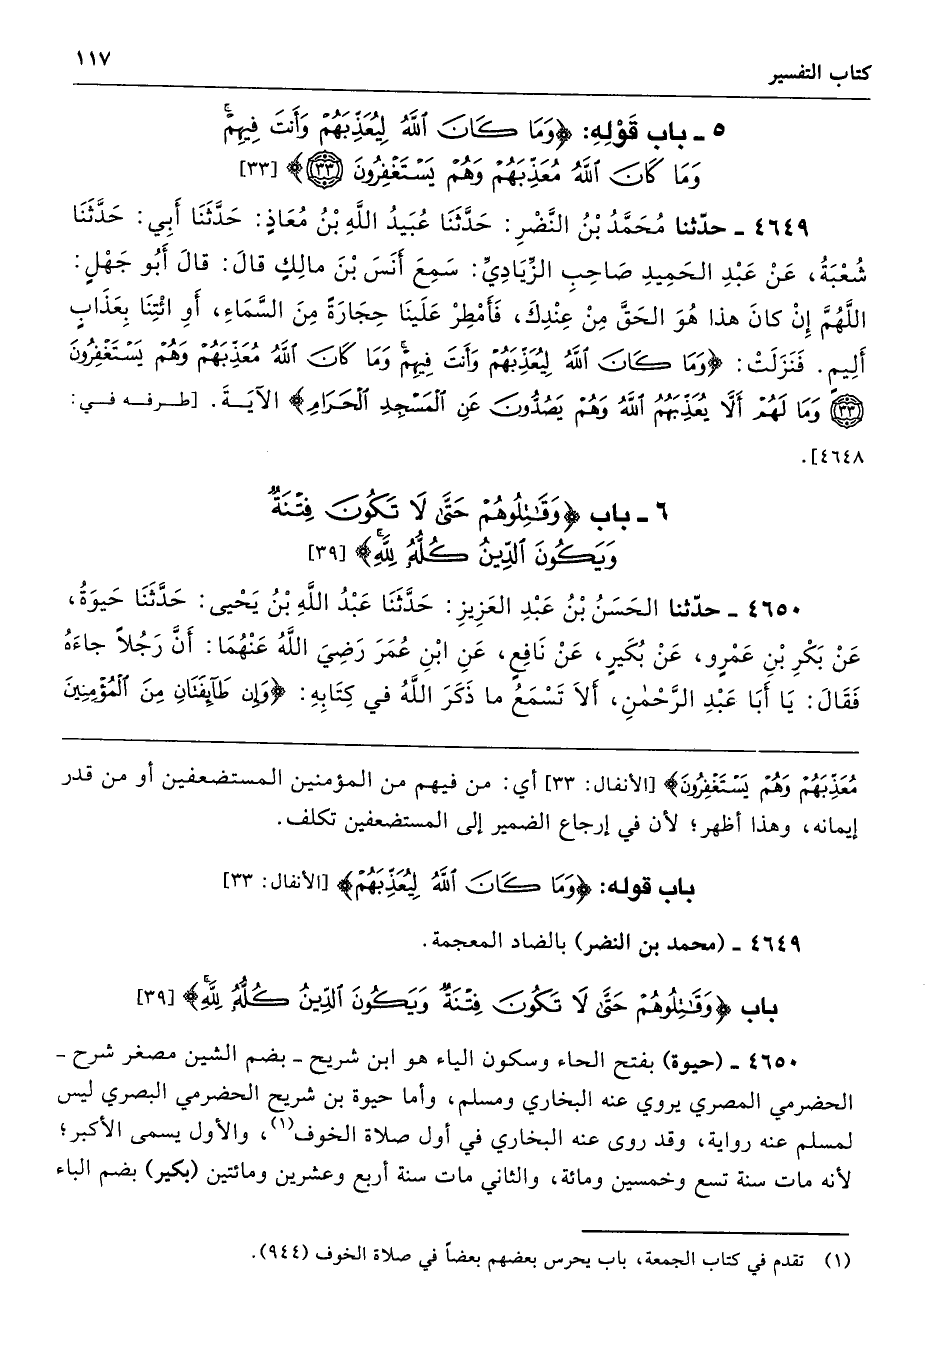 كتاب التفسير
١١٧
٥ ـ باب قَوْلِهِ: ﴿وَمَا كَانَ اللَّهُ لِيُعَذِّبَهُمْ وَأَنتَ فِيهِمْ
وَمَا كَانَ اللَّهُ مُعَذِّبَهُمْ وَهُمْ يَسْتَغْفِرُونَ ٣٣﴾ [٣٣]
٤٦٤٩ ـ حدّثنا مُحَمَّدُ بْنُ النَّضْرِ: حَدَّثَنَا عُبَيدُ اللَّهِ بْنُ مُعَاذٍ: حَدَّثَنَا أَبِي: حَدَّثَنَا
شُعْبَةُ، عَنْ عَبْدِ الحَمِيدِ صَاحِبِ الزِّيَادِيِّ: سَمِعَ أَنَسَ بْنَ مالِكٍ قالَ: قالَ أَبُو جَهْلٍ:
اللَّهُمَّ إِنْ كانَ هذا هُوَ الحَقَّ مِنْ عِنْدِكَ، فَأَمْطِرْ عَلَينَا حِجَارَةً مِنَ السَّمَاءِ، أَوِ ائْتِنَا بِعَذَابٍ
أَلِيمٍ. فَنَزَلَتْ: ﴿وَمَا كَانَ اللَّهُ لِيُعَذِّبَهُمْ وَأَنتَ فِيهِمْ وَمَا كَانَ اللَّهُ مُعَذِّبَهُمْ وَهُمْ يَسْتَغْفِرُونَ
٣٣ وَمَا لَهُمْ أَلَّا يُعَذِّبَهُمُ اللَّهُ وَهُمْ يَصُدُّونَ عَنِ الْمَسْجِدِ الْحَرَامِ﴾ الآيَةَ. [طرفه في:
٤٦٤٨].
٦ ـ باب ﴿وَقَاتِلُوهُمْ حَتَّى لَا تَكُونَ فِتْنَةٌ
وَيَكُونَ الدِّينُ كُلُّهُ لِلَّهِ﴾ [٣٩]
٤٦٥٠ ـ حدّثنا الحَسَنُ بْنُ عَبْدِ العَزِيزِ: حَدَّثَنَا عَبْدُ اللَّهِ بْنُ يَحْيى: حَدَّثَنَا حَيوَةُ،
عَنْ بَكْرِ بْنِ عَمْرٍو، عَنْ بُكَيرٍ، عَنْ نَافِعٍ، عَنِ ابْنِ عُمَرَ رَضِيَ اللَّهُ عَنْهُمَا: أَنَّ رَجُلاً جاءَهُ
فَقَالَ: يَا أَبَا عَبْدِ الرَّحْمٰنِ، أَلاَ تَسْمَعُ ما ذَكَرَ اللَّهُ في كِتَابِهِ: ﴿وَإِن طَائِفَتَانِ مِنَ الْمُؤْمِنِينَ
مُعَذِّبَهُمْ وَهُمْ يَسْتَغْفِرُونَ﴾ [الأنفال: ٣٣] أي: من فيهم من المؤمنين المستضعفين أو من قدر
إيمانه، وهذا أظهر؛ لأن في إرجاع الضمير إلى المستضعفين تكلف.
باب قوله: ﴿وَمَا كَانَ اللَّهُ لِيُعَذِّبَهُمْ﴾ [الأنفال: ٣٣]
٤٦٤٩ ـ (محمد بن النضر) بالضاد المعجمة.
باب ﴿وَقَاتِلُوهُمْ حَتَّى لَا تَكُونَ فِتْنَةٌ وَيَكُونَ الدِّينُ كُلُّهُ لِلَّهِ﴾ [٣٩]
٤٦٥٠ ـ (حيوة) بفتح الحاء وسكون الياء هو ابن شريح ـ بضم الشين مصغر شرح ـ
الحضرمي المصري يروي عنه البخاري ومسلم، وأما حيوة بن شريح الحضرمي البصري ليس
لمسلم عنه رواية، وقد روى عنه البخاري في أول صلاة الخوف(١)، والأول يسمى الأكبر؛
لأنه مات سنة تسع وخمسين ومائة، والثاني مات سنة أربع وعشرين ومائتين (بكير) بضم الباء
(١) تقدم في كتاب الجمعة، باب يحرس بعضهم بعضاً في صلاة الخوف (٩٤٤).